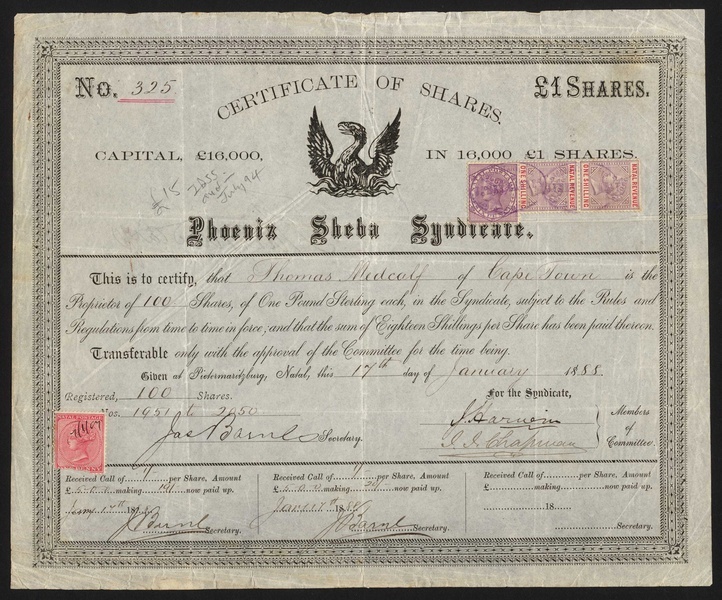 No. 325
CERTIFICATE OF SHARES.
£1 SHARES.
CAPITAL, £16,000,
IN 16,000 £1 SHARES.
£15
July 94
NATAL REVENUE
ONE SHILLING
NATAL REVENUE
ONE SHILLING
Phoenix Sheba Syndicate.
This is to certify, that Thomas Medcalf of Cape Town is the
Proprietor of 100 Shares, of One Pound Sterling each, in the Syndicate, subject to the Rules and
Regulations from time to time in force, and that the sum of Eighteen Shillings per Share has been paid thereon.
Transferable only with the approval of the Committee for the time being.
Given at Pietermaritzburg, Natal, this 17th day of January 1888.
Registered, 100 Shares.
For the Syndicate,
Nos. 1951 to 2050
Jas Barnl Secretary.
J. J. Chapman
Members of Committee.
NATAL POSTAGE
ONE PENNY
Received Call of 1/- per Share, Amount
£ 5.0.0 making 19/- now paid up.
Jany 17th 18
J Barnl
Secretary.
Received Call of 1/- per Share, Amount
£ 5.0.0 making 20/- now paid up.
Jany 17th 18
J Barnl
Secretary.
Received Call of per Share, Amount
£ making now paid up.
18
Secretary.